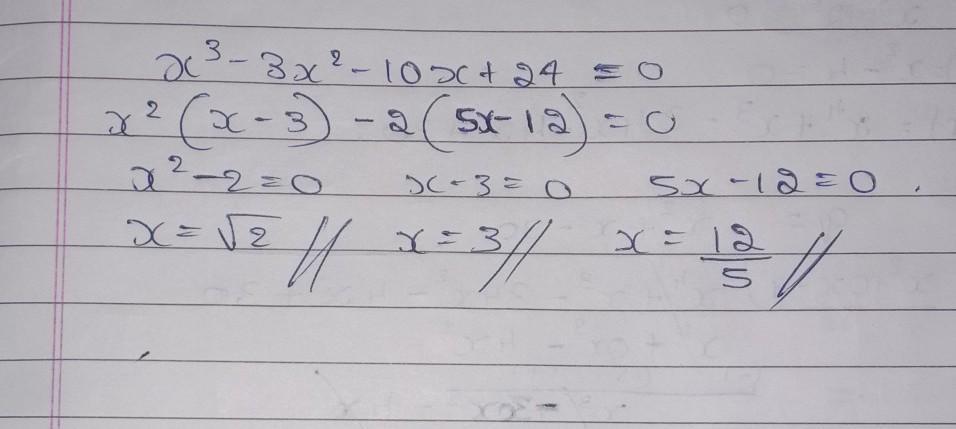 x³ - 3x² - 10x + 24 = 0
x² (x - 3) - 2 (5x - 12) = 0
x² - 2 = 0 x - 3 = 0 5x - 12 = 0 .
x = √2 // x = 3 // x = 12/5 //